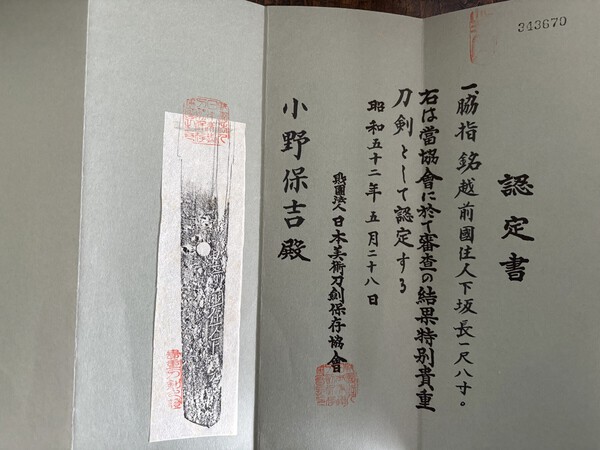 343670
認定書
一、脇指 銘 越前國住人下坂 長一尺八寸。
右は當協會に於て審査の結果特別貴重
刀剣として認定する
昭和五十二年五月二十八日
財團法人日本美術刀剣保存協會
小野保吉殿